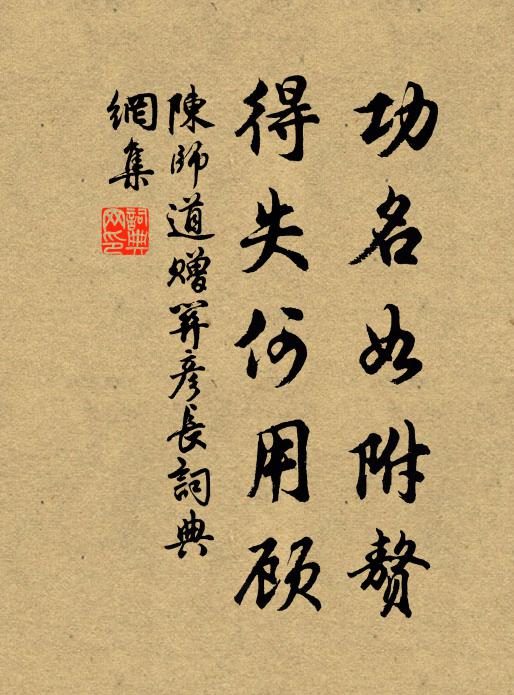 功名如附贅
得失何用顾
陳師道贈關彥長詞典
網集
詞典
网印